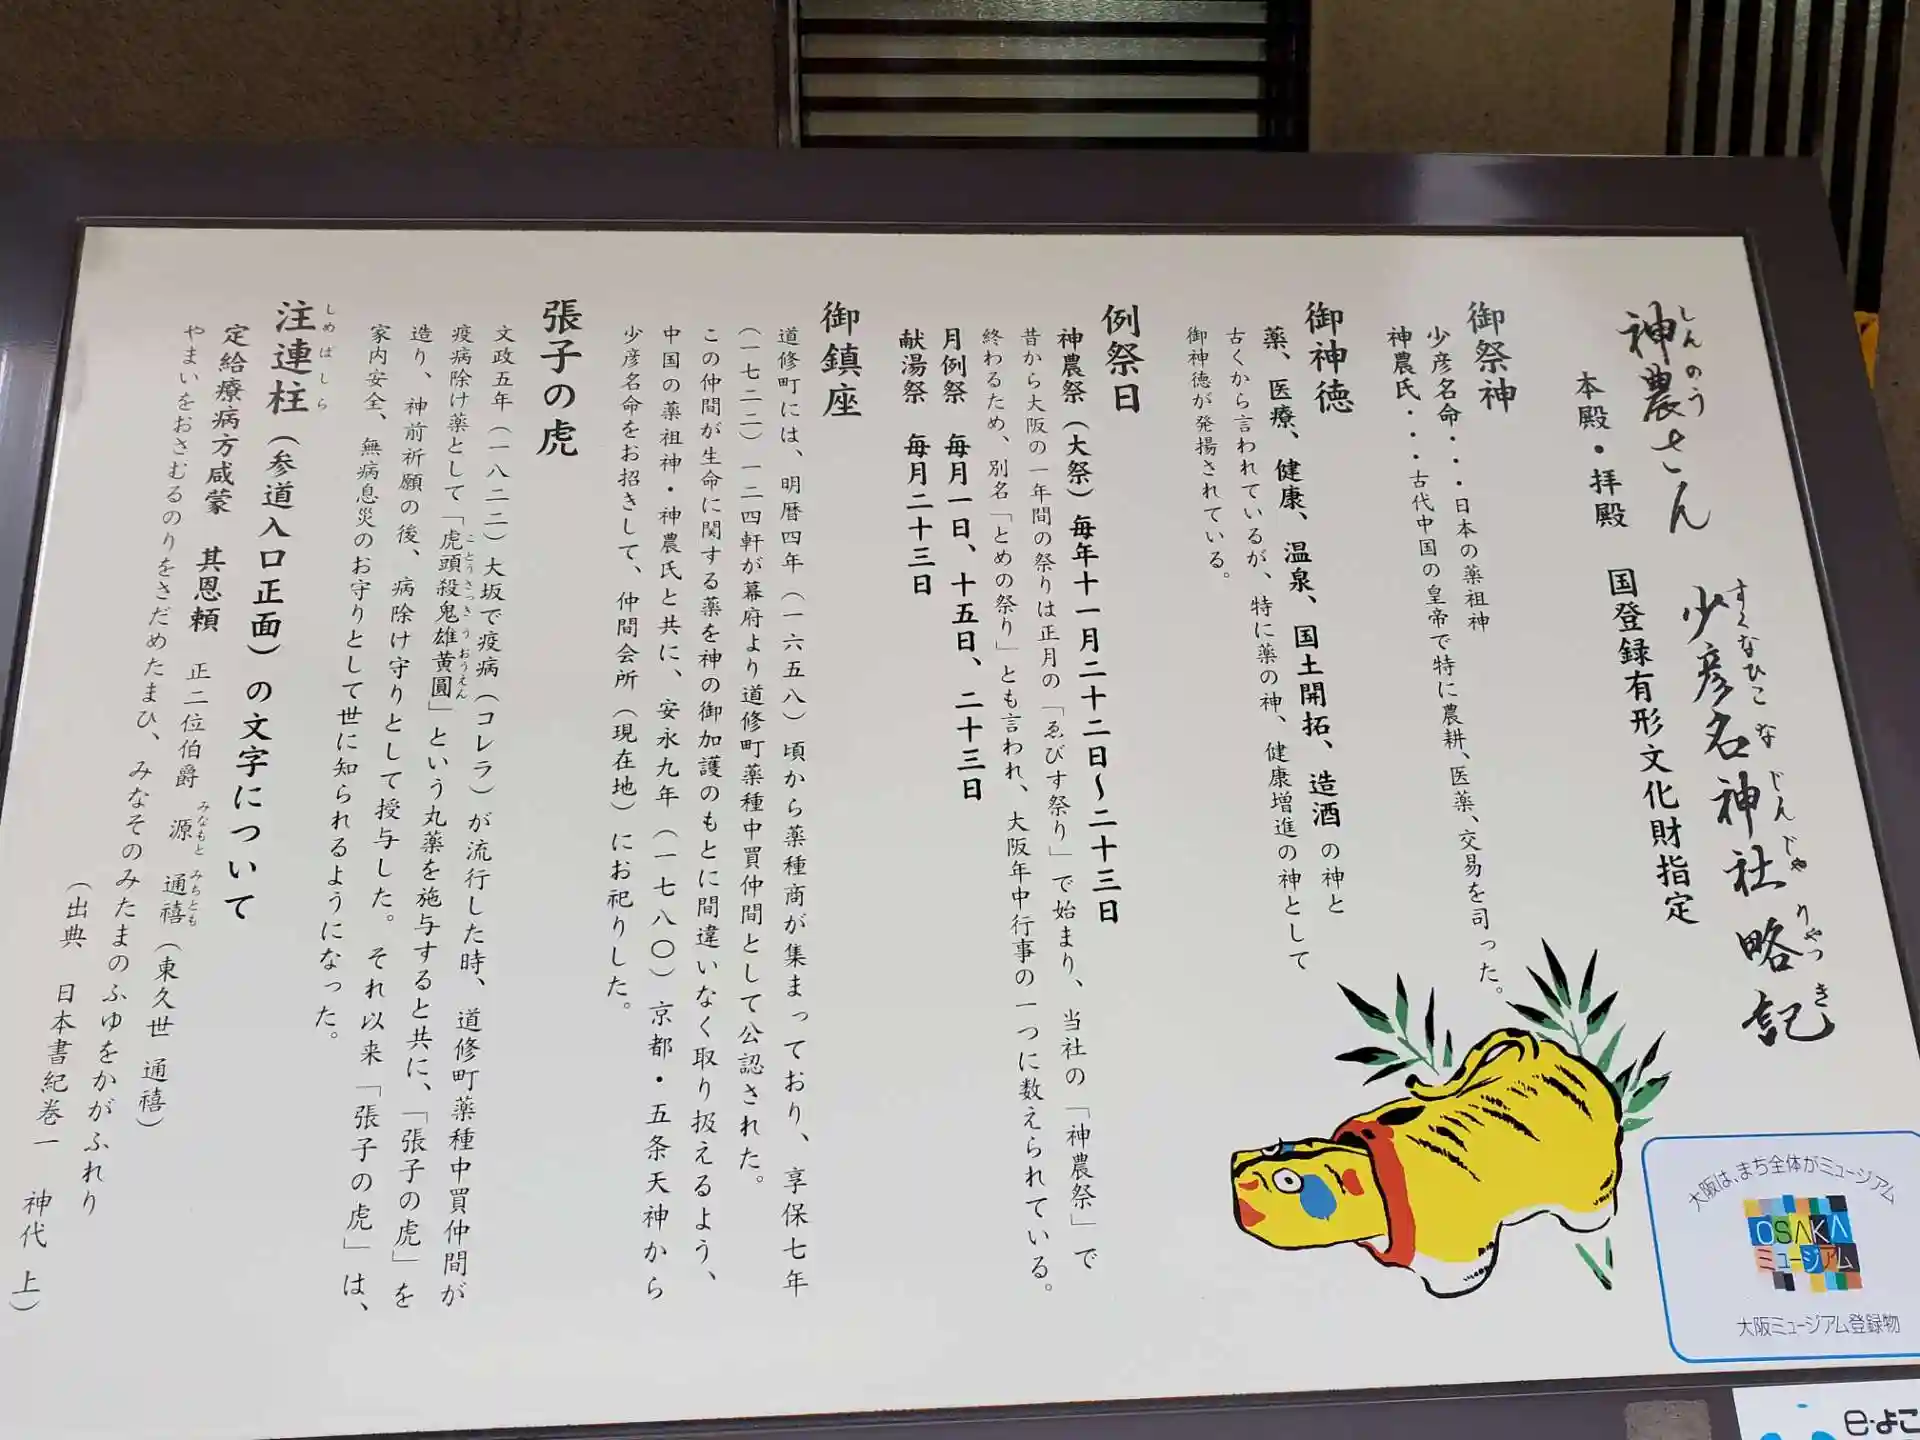 神農さん　少彦名神社略記
しんのう　すくなひこなじんじゃりゃっき
本殿・拝殿　国登録有形文化財指定
御祭神
少彦名命・・・日本の薬祖神
神農氏・・・古代中国の皇帝で特に農耕、医薬、交易を司った。
御神徳
薬、医療、健康、温泉、国土開拓、造酒の神と
古くから言われているが、特に薬の神、健康増進の神として
御神徳が発揚されている。
例祭日
神農祭（大祭）毎年十一月二十二日～二十三日
昔から大阪の一年間の祭りは正月の「ゑびす祭り」で始まり、当社の「神農祭」で
終わるため、別名「とめの祭り」とも言われ、大阪年中行事の一つに数えられている。
月例祭　毎月一日、十五日、二十三日
献湯祭　毎月二十三日
御鎮座
道修町には、明暦四年（一六五八）頃から薬種商が集まっており、享保七年
（一七二二）一二四軒が幕府より道修町薬種中買仲間として公認された。
この仲間が生命に関する薬を神の御加護のもとに間違いなく取り扱えるよう、
中国の薬祖神・神農氏と共に、安永九年（一七八〇）京都・五条天神から
少彦名命をお招きして、仲間会所（現在地）にお祀りした。
張子の虎
文政五年（一八二二）大坂で疫病（コレラ）が流行した時、道修町薬種中買仲間が
疫病除け薬として「虎頭殺鬼雄黄圓」という丸薬を施与すると共に、「張子の虎」を
ことうさっきうおうえん
造り、神前祈願の後、病除け守りとして授与した。それ以来「張子の虎」は、
家内安全、無病息災のお守りとして世に知られるようになった。
注連柱（参道入口正面）の文字について
しめばしら
定給療病方咸蒙　其恩頼　正二位伯爵　源　通禧（東久世　通禧）
みなもと　みちとも
やまいをおさむるのりをさだめたまひ、みなそのみたまのふゆをかがふれり
（出典　日本書紀巻一　神代　上）
大阪は、まち全体がミュージアム
OSAKA
ミュージアム
大阪ミュージアム登録物
e・よこ